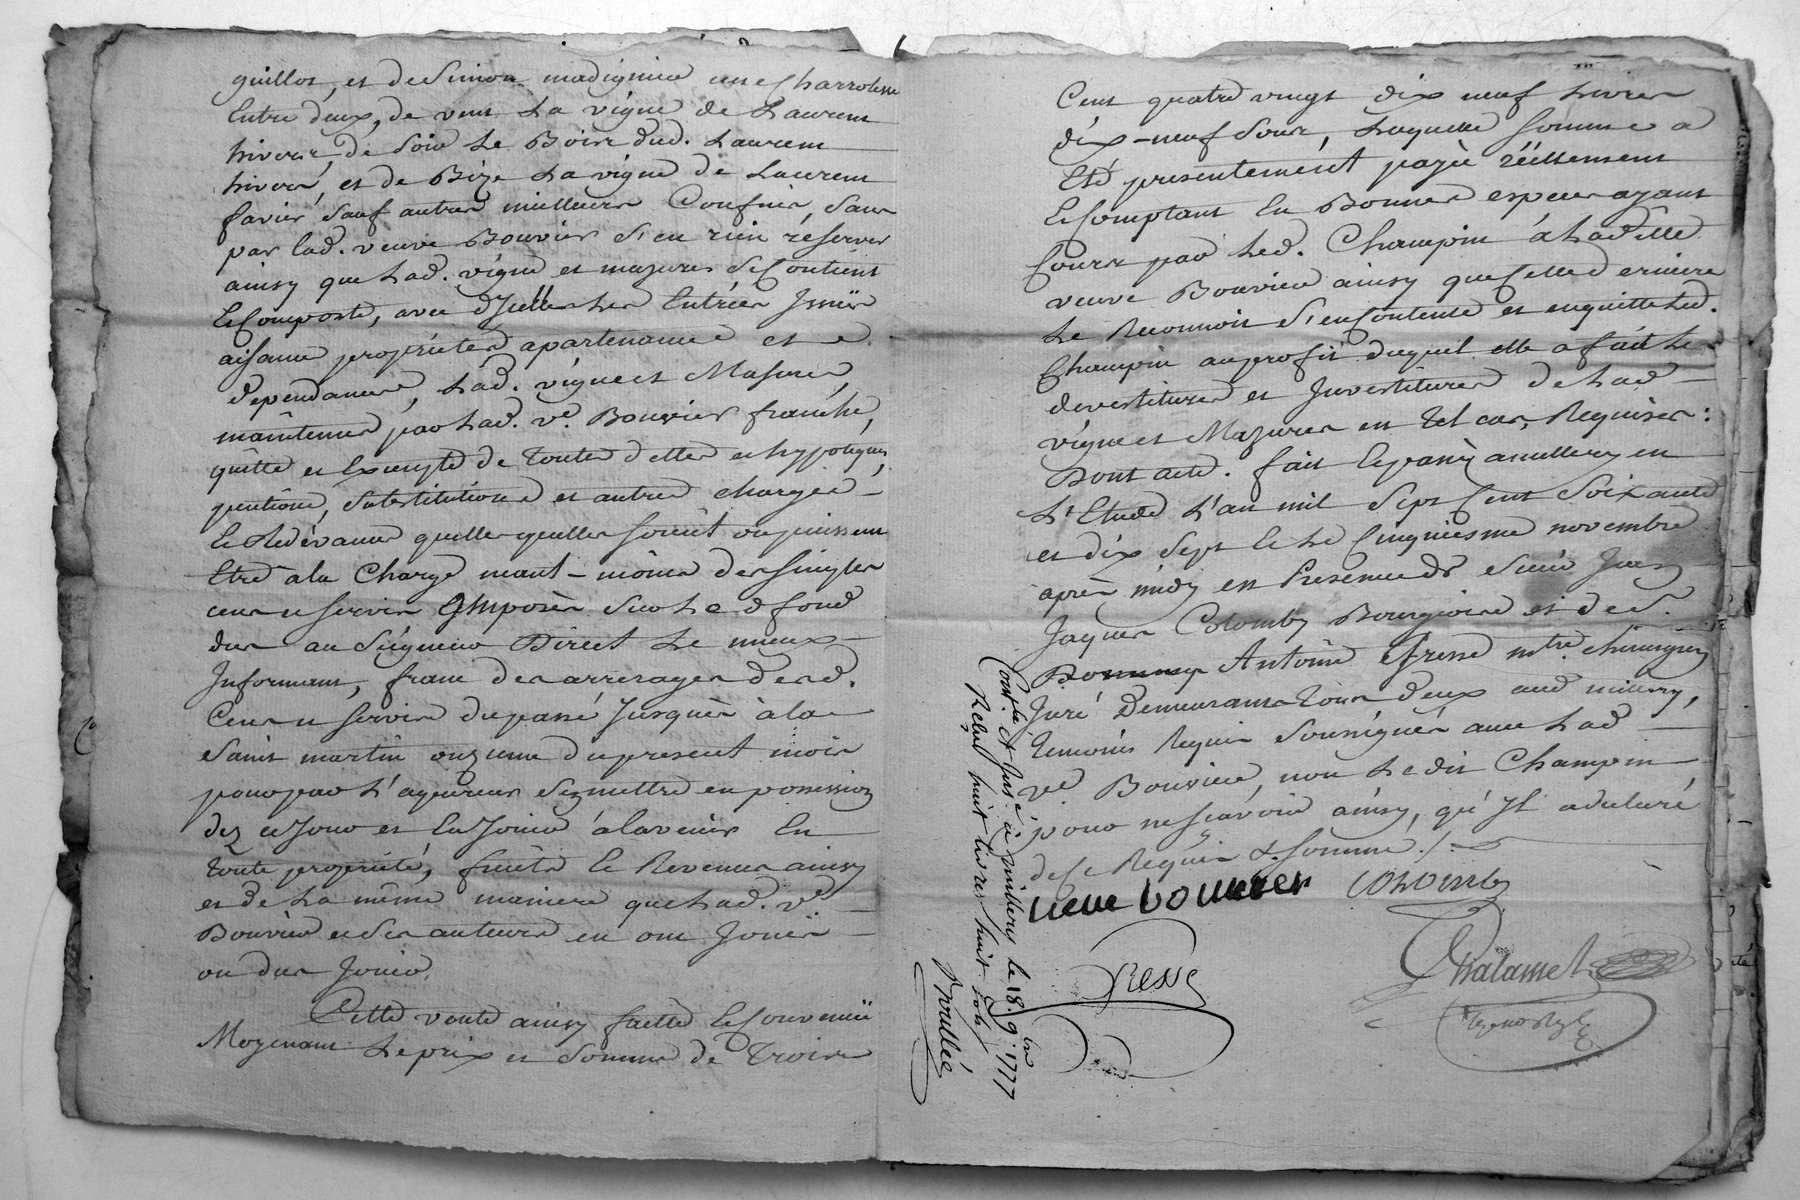 guillot, et de Simon madignier une Charrotiere
Entre deux, de vent La vigne de Laurent
hivert, de Soir Le Bois dud. Laurent
hivert, et de Bize La vigne de Laurent
favier Sauf autres meilleurs Confins, Sans
par lad. veuve Bouvier S'en rien réserver
ainsy que Lad. vigne et mazures Se Contient
Et Comporte, avec d'Icelles Les Entrées Issües
aisance proprietés apartenance et
dependance, Lad. vigne et Masures
maintenues par Lad. ve. Bouvier franche,
quitte et Exempte de toutes dettes et hypoteques,
pentions, Substitutions et autres charges
Et Redevances quelles quelles soient ou puissent
Etre a la Charge neant-moins des Simples
cens et servis Imposés Sur Led fond
dus au Seigneur Direct Le mieux
Informant, franc des arrerages desd.
Cens et servis du passé Jusques à la
Saint martin onzieme du present mois
pour par L'aqereur Se mettre en possession
dez ce Jour et En Jouir à l'avenir En
toute proprieté, fruits Et Revenus ainsy
et de La même maniere que Lad. ve
Bouvier et Ses auteurs en ont Jouis
ou dus Jouir.
Cette vente ainsy faitte Et Convenüe
Moyenant Le prix et Somme de trois
Cent quatre vingt dix neuf Livres
dix-neuf Sous, Laquelle Somme a
Eté presentement payée réellement
Et Comptant En Bonnes especes ayant
Cours par Led. Champin à Lad
veuve Bouvier ainsy que Cette derniere
Le Reconnoit S'en Contente et en quitte Led.
Champin au profit duquel elle a fait Les
devestitures et Investitures de Lad
vigne et Mazures en tel cas Requises:
Dont acte. fait Et passé a millery en
L'Etude L'an mil Sept Cent Soixante
et dix Sept Et Le Cinquiesme novembre
après midy en Presence de Sieur Jean
Jaques Colomby Bourgeois et de S.
Antoine fresse mtre. chirurgien
Juré Demeurants tous deux aud millery,
temoins Requis Soussignés avec Lad
ve Bouvier, non Ledit Champin
pour ne sçavoir ainsy, qu'Il a declaré
de Ce Requis & Sommé ./.
veuve bouvier Colomby
fresse
Chalamel
Contlé et Insé. à millery le 18. 9bre 1777
Reçu huit livres huit Sols